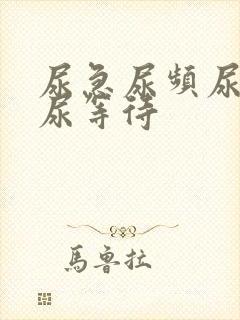 尿急尿频尿
尿等待
馬鲁拉